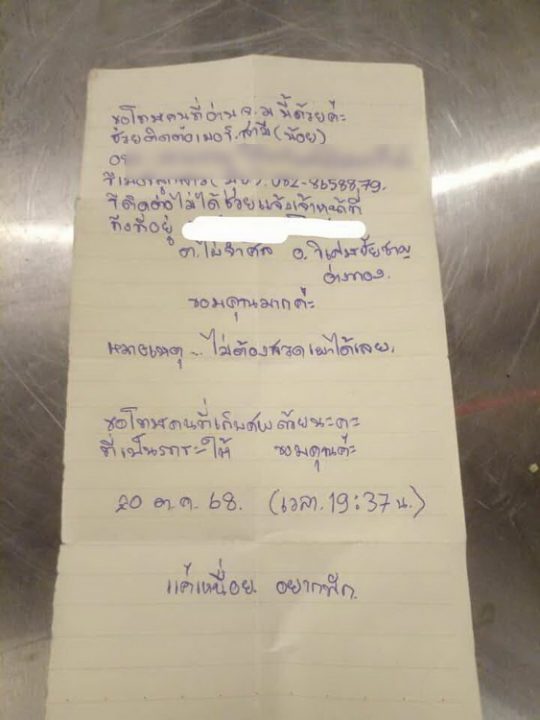 ขอโทษคนที่อ่าน จ.ม นี้ด้วยค่ะ
ช่วยติดต่อเบอร์. สามี (น้อย)
09
082-8658879.
ติดต่อไม่ได้ช่วยแจ้งเจ้าหน้าที่
ถึงที่อยู่
ต. ไผ่จำศีล อ. วิเศษชัยชาญ
อ่างทอง.
ขอบคุณมากค่ะ
หมายเหตุ ... ไม่ต้องสวดเผาได้เลย.
ขอโทษคนที่เก็บศพด้วยนะคะ
ที่เป็นภาระให้ ขอบคุณค่ะ
20 ต.ค. 68. (เวลา. 19:37 น.)
แค่เหนื่อย อยากพัก.